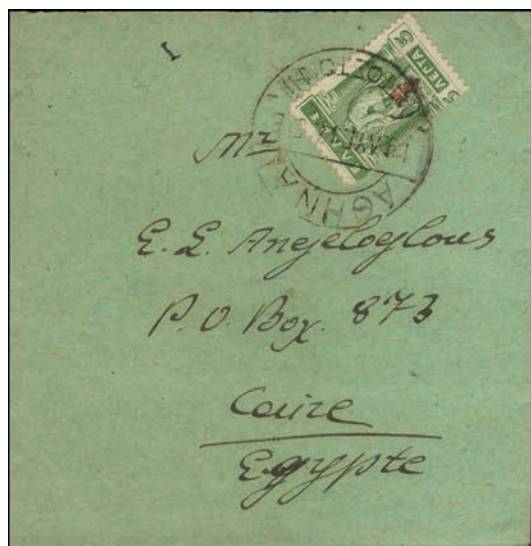 I
5 ΛΕΠΤΑ 5
ΕΛΛΑΣ
ΑΘΗΝΑΙ
Mr
E. L. Angeloglous
P. O. Box. 873
Caire
Egypte